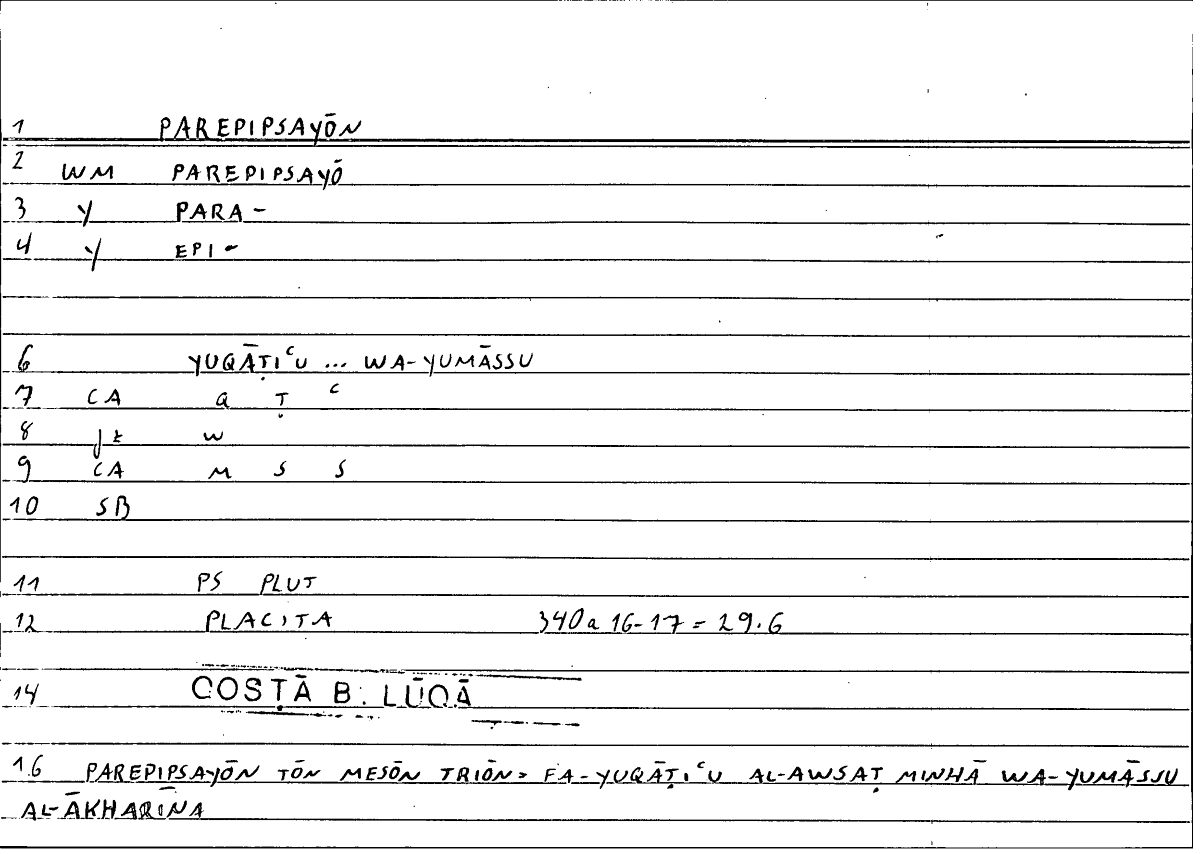 1 PAREPIPSAYŌN
2 WM PAREPIPSAYŌ
3 Y PARA-
4 Y EPI-
6 YUQĀṬIᶜU ... WA-YUMĀSSU
7 CA Q Ṭ ᶜ
8 jz W
9 CA M S S
10 SB
11 PS PLUT
12 PLACITA 340a 16-17 = 29.6
14 COSṬĀ B. LŪQĀ
16 PAREPIPSAYŌN TŌN MESŌN TRIŌN= FA-YUQĀṬIᶜU AL-AWSAṬ MINHĀ WA-YUMĀSSU
AL-ĀKHARĪNA